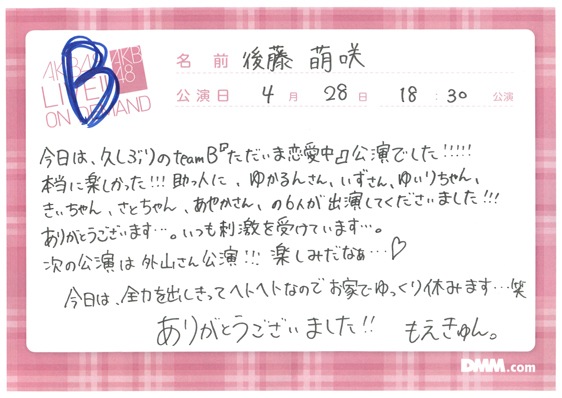 AKB48
LIVE!! ON DEMAND
B
名前 後藤 萌咲
公演日 4月 28日 18:30 公演
今日は、久しぶりのteamB『ただいま恋愛中』公演でした!!!!!
本当に楽しかった!!! 助っ人に、ゆかるんさん、いずさん、ゆいりちゃん、
きぃちゃん、さとちゃん、あやかさん、の6人が出演してくださいました!!!
ありがとうございます…。いつも刺激を受けています…。
次の公演は外山さん公演!!! 楽しみだなぁ…♡
今日は、全力を出しきってヘトヘトなのでお家でゆっくり休みます…笑
ありがとうございました!! もえきゅん。
DMM.com